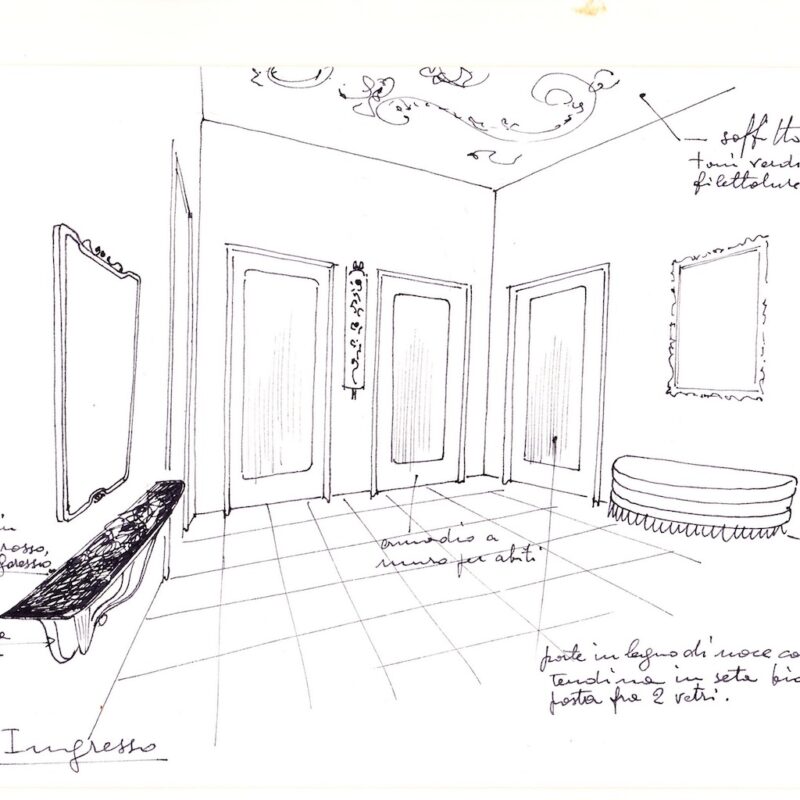 soffitto
toni verdi
filettature
in
rosso,
armadio a
muro per abiti
porte in legno di noce co
tendina in seta bia
posta fra 2 vetri.
Ingresso